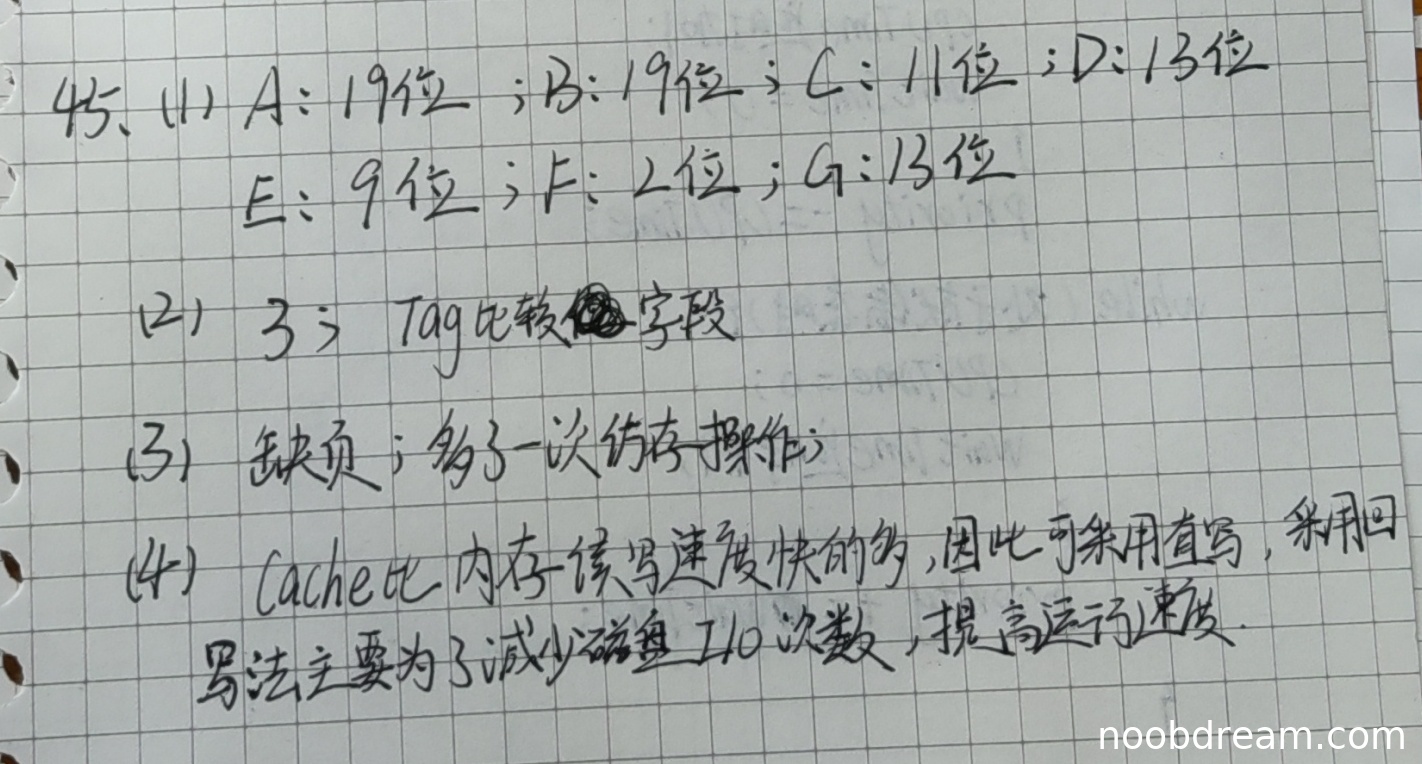 45、(1) A: 19位 ; B: 19位 ; C: 11位 ; D: 13位
E: 9位 ; F: 2位 ; G: 13位
(2) 3; Tag比较字段
(3) 缺页; 多了一次访存操作;
(4) Cache比内存读写速度快的多,因此可采用直写,采用回
写法主要为了减少磁盘I/O次数,提高运行速度.
noobdream.com